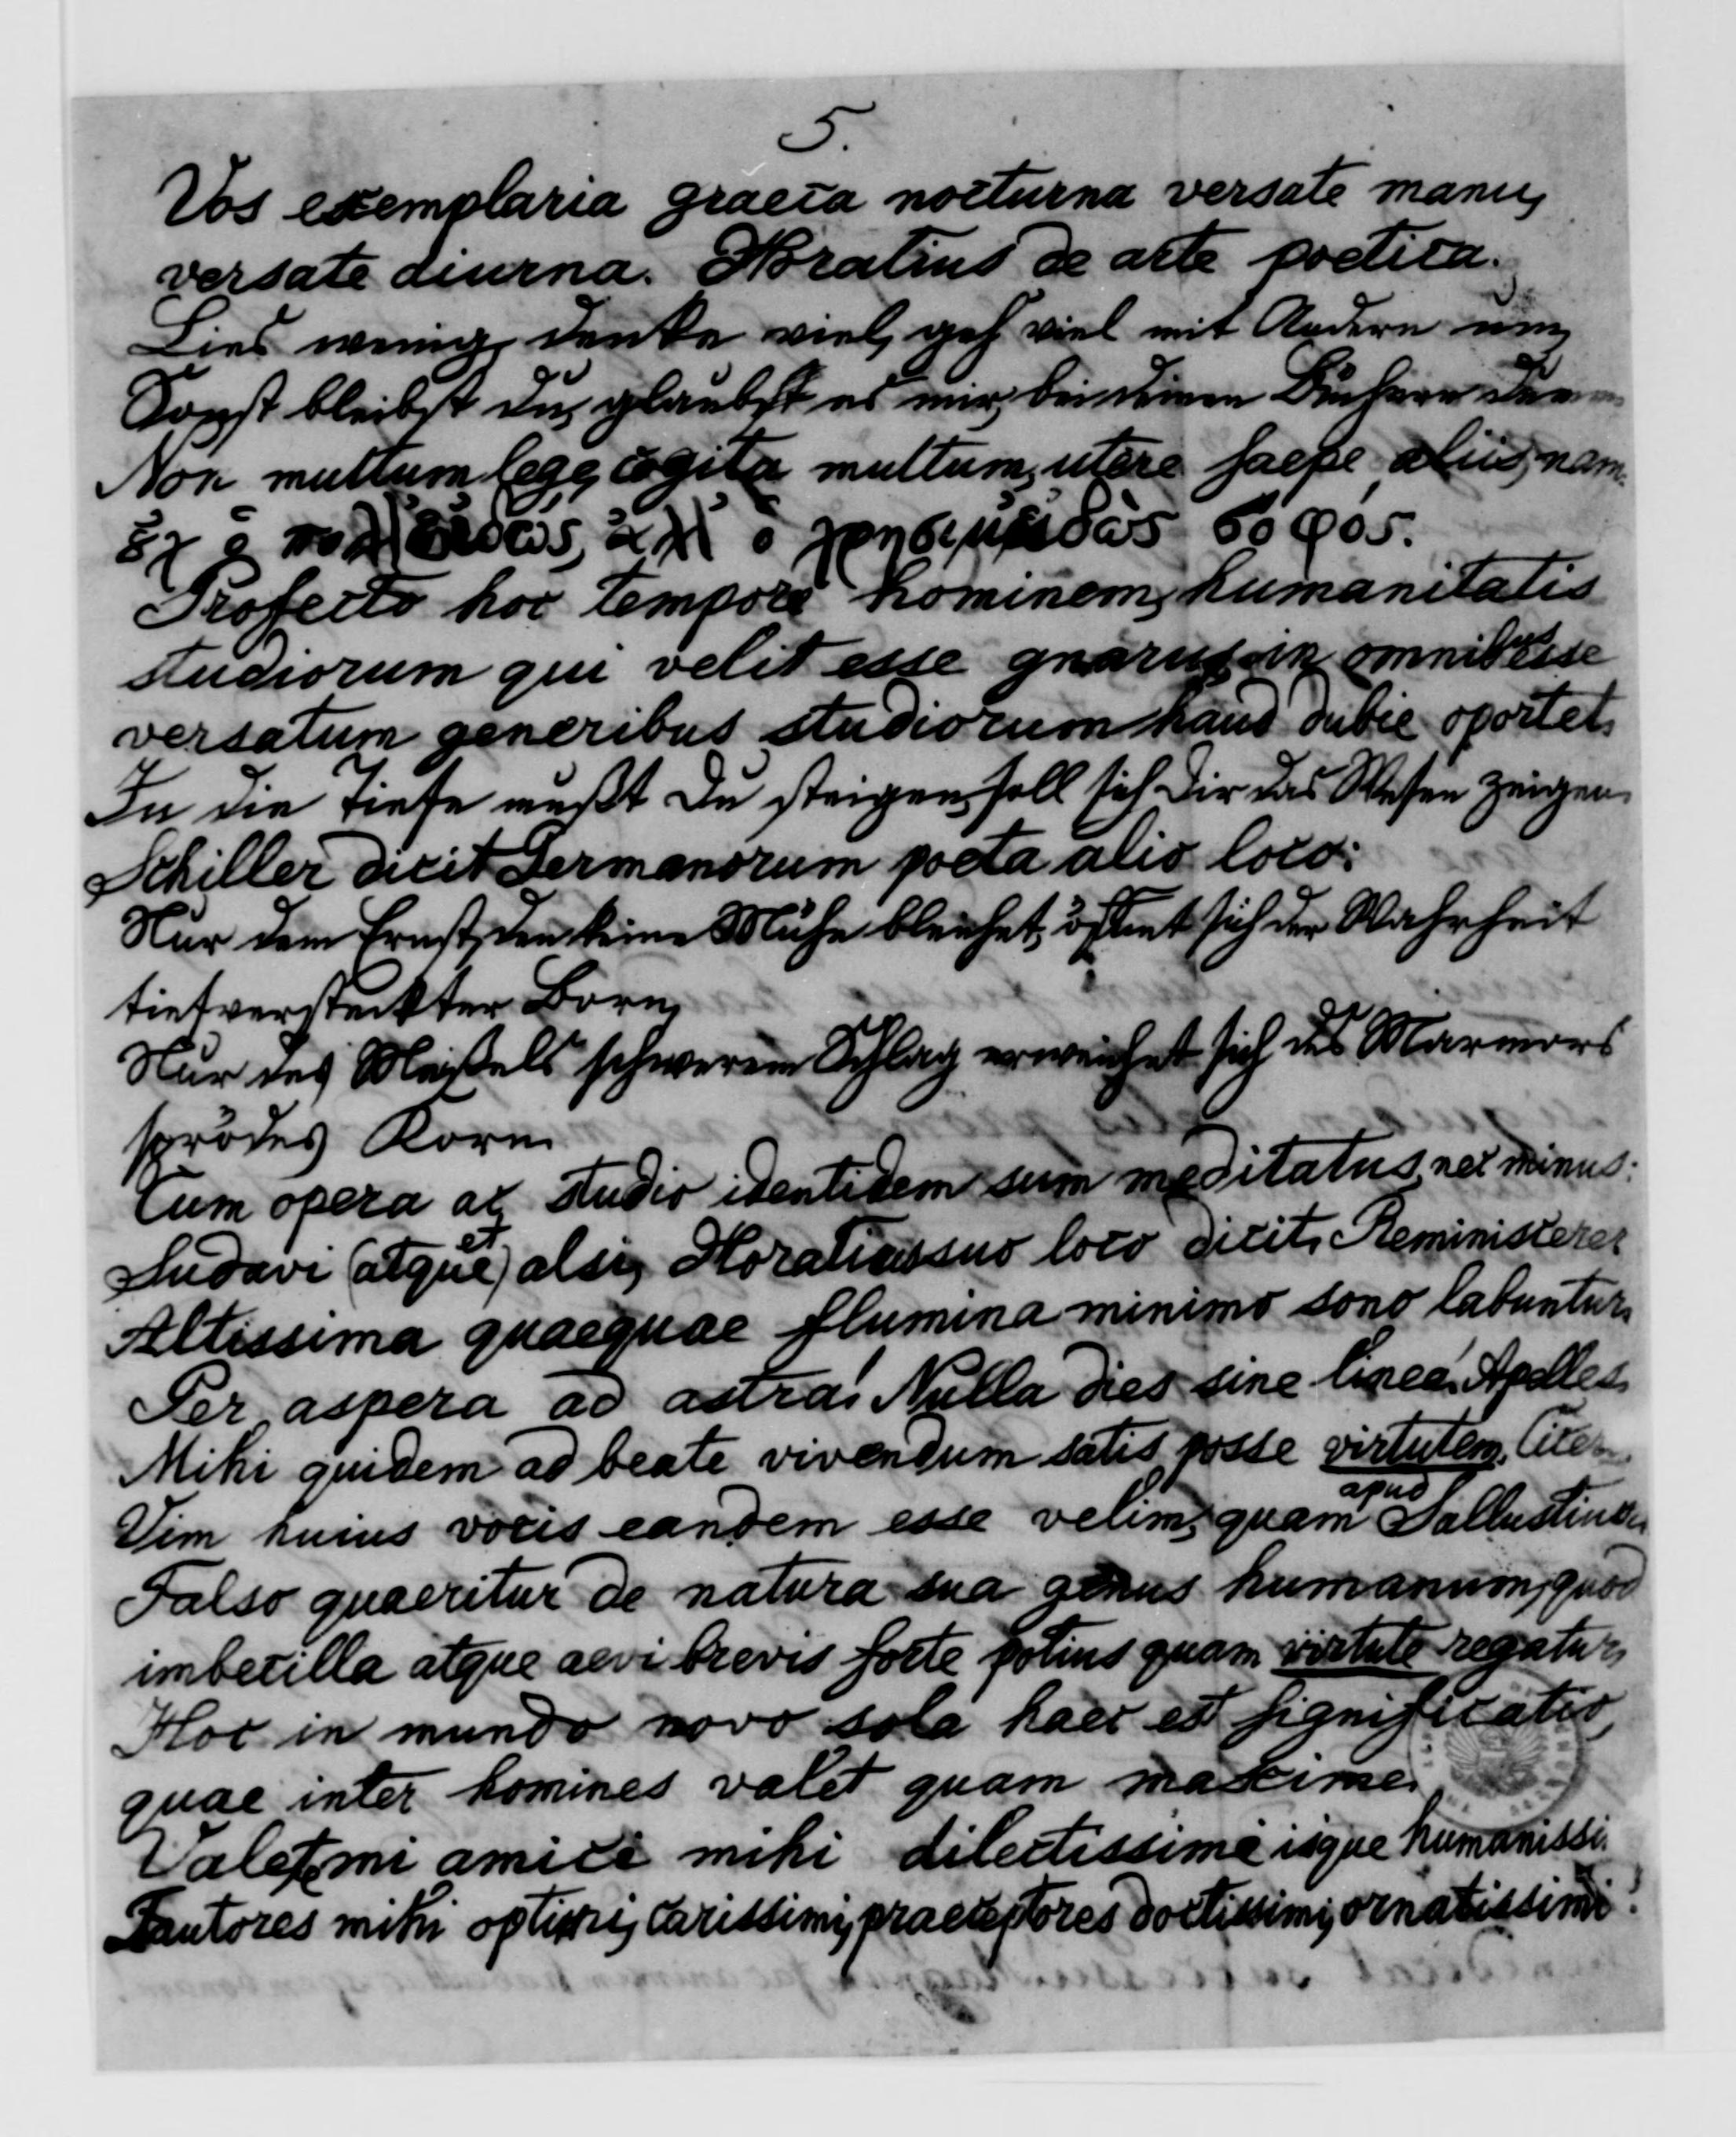 5.
Vos exemplaria graeca nocturna versate manu,
versate diurna. Horatius de arte poetica.
Lies wenig, denke viel, geh viel mit Andern um,
Sonst bleibst du, glaubst es mir, bei deinen Büchern dumm
Non multum lege, cogita multum, utere saepe aliis, nam
οὐχ ὁ πολλ' εἰδώς, ἀλλ' ὁ χρήσιμ' εἰδὼς σοφός.
Profecto hoc tempore hominem, humanitatis
studiorum qui velit esse gnarus, in omnibus esse
versatum generibus studiorum haud dubie oportet.
In die Tiefe mußt Du steigen, soll sich Dir das Wesen zeigen
Schiller dicit Germanorum poeta alio loco:
Nur dem Ernst, den keine Mühe bleichet, öffnet sich der Wahrheit
tiefversteckter Born,
Nur des Meißels schwerem Schlag erweichet sich des Marmors
sprödes Korn.
Cum opera ac studio identidem sum meditatus, nec minus:
Sudavi (atque) et alsi, Horatius suo loco dicit. Reminiscere:
Altissima quaequae flumina minimo sono labuntur.
Per aspera ad astra! Nulla dies sine linea! Apelles.
Mihi quidem ad beate vivendum satis posse virtutem.
Vim huius vocis eandem esse velim, quam apud Sallustium
Falso quaeritur de natura sua genus humanum, quod
imbecilla atque aevi brevis forte potius quam virtute regatur,
Hoc in mundo novo sola haec est significatio,
quae inter homines valet quam maxime.
Valete, mi amici mihi dilectissime isque humanissi
Fautores mihi optimi, carissimi, praeceptores doctissimi, ornatissimi!